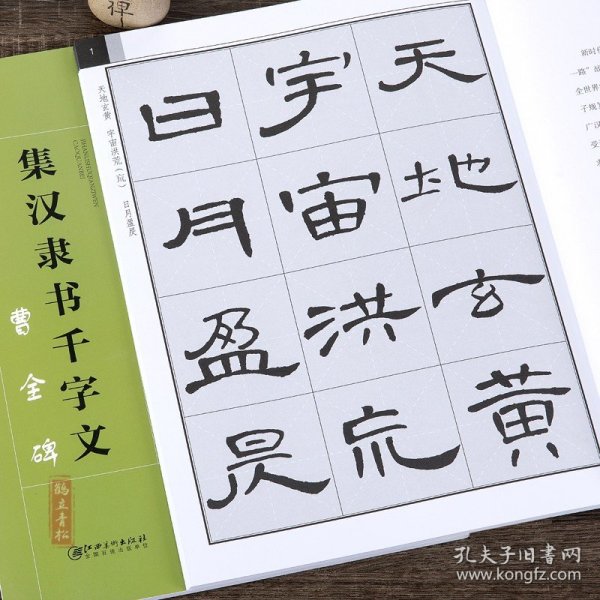 禅
集汉隶书千字文
JIHANLISHUQIANZIWEN
CAOQUANBEI
曹全碑
鹤立青松
江西美术出版社
全国百佳出版单位
1
天地玄黄 宇宙洪荒（巟） 日月盈昃
天地玄黄
宇宙洪巟
日月盈昃
新时
一路”
全世界
子规
广汉
受
孔夫子旧书网
www.kongfz.com